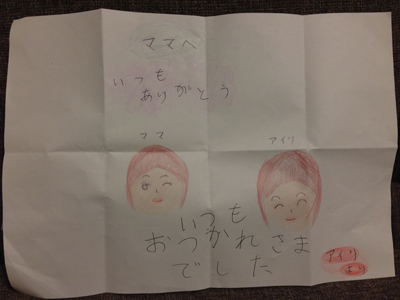 ママへ
いつも
ありがとう
ママ
アイリ
いつも
おつかれさま
でした
アイリ
より